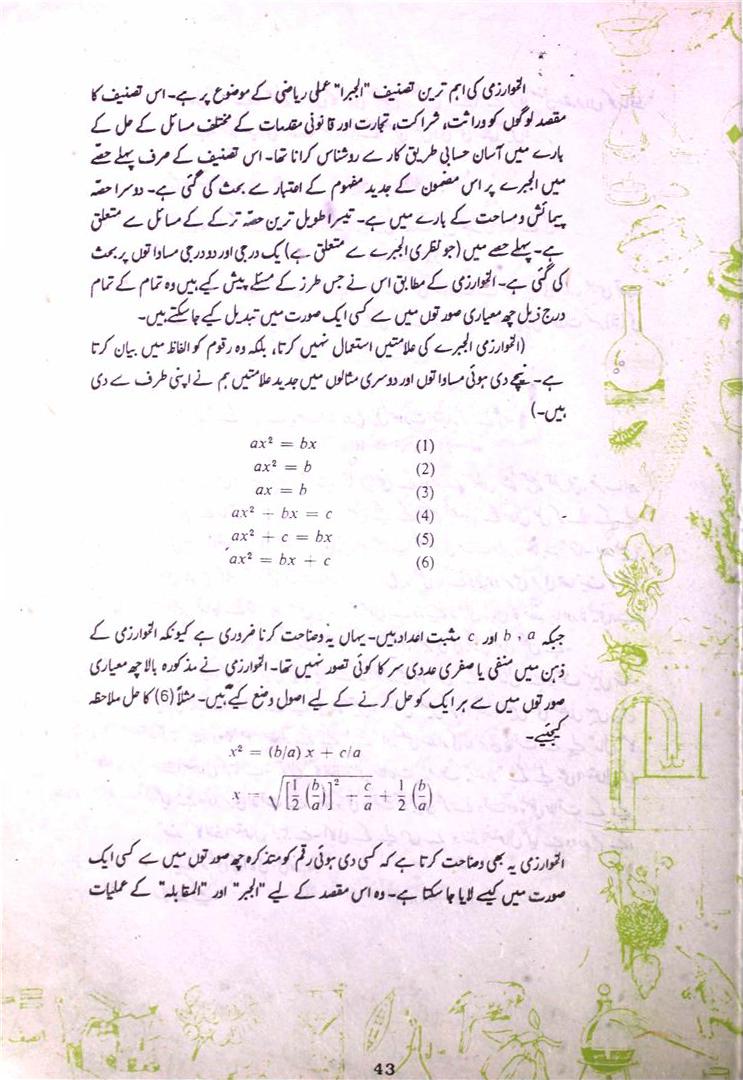 الخوارزمی کی اہم ترین تصنیف "الجبرا" عملی ریاضی کے موضوع پر ہے۔ اس تصنیف کا
مقصد لوگوں کو وراثت، شراکت، تجارت اور قانونی مقدمات کے مختلف مسائل کے حل کے
بارے میں آسان حسابی طریق کار سے روشناس کرانا تھا۔ اس تصنیف کے صرف پہلے حصّے
میں الجبرے پر اس مضمون کے جدید مفہوم کے اعتبار سے بحث کی گئی ہے۔ دوسرا حصّہ
پیمائش و مساحت کے بارے میں ہے۔ تیسرا طویل ترین حصّہ ترکے کے مسائل سے متعلق
ہے۔ پہلے حصے میں (جو نظری الجبرے سے متعلق ہے) یک درجی اور دو درجی مساداتوں پر بحث
کی گئی ہے۔ الخوارزمی کے مطابق اس نے جس طرز کے مسئلے پیش کیے ہیں وہ تمام کے تمام
درج زیل چھ معیاری صورتوں میں سے کسی ایک صورت میں تبدیل کیے جاسکتے ہیں۔
(الخوارزمی الجبرے کی علامتیں استعمال نہیں کرتا، بلکہ وہ رقوم کو الفاظ میں بیان کرتا
ہے۔ نیچے دی ہوئی مساداتوں اور دوسری مثالوں میں جدید علامتیں ہم نے اپنی طرف سے دی
ہیں۔)
ax² = bx (1)
ax² = b (2)
ax = b (3)
ax² + bx = c (4)
ax² + c = bx (5)
ax² = bx + c (6)
جبکہ a ، b اور c مثبت اعداد ہیں۔ یہاں یہ وضاحت کرنا ضروری ہے کیونکہ الخوارزمی کے
ذہن میں منفی یا صفری عددی سر کا کوئی تصور نہیں تھا۔ الخوارزمی نے مذکورہ بالا چھ معیاری
صورتوں میں سے ہر ایک کو حل کرنے کے لیے اصول وضع کیے ہیں۔ مثلاً (6) کا حل ملاحظہ
کیجئیے۔
x² = (b/a) x + c/a
x = √([½ (b/a)]² + c/a) + ½ (b/a)
الخوارزمی یہ بھی وضاحت کرتا ہے کہ کسی دی ہوئی رقم کو متذکرہ چھ صورتوں میں سے کسی ایک
صورت میں کیسے لایا جا سکتا ہے۔ وہ اس مقصد کے لیے "الجبر" اور "المقابلہ" کے عملیات
43